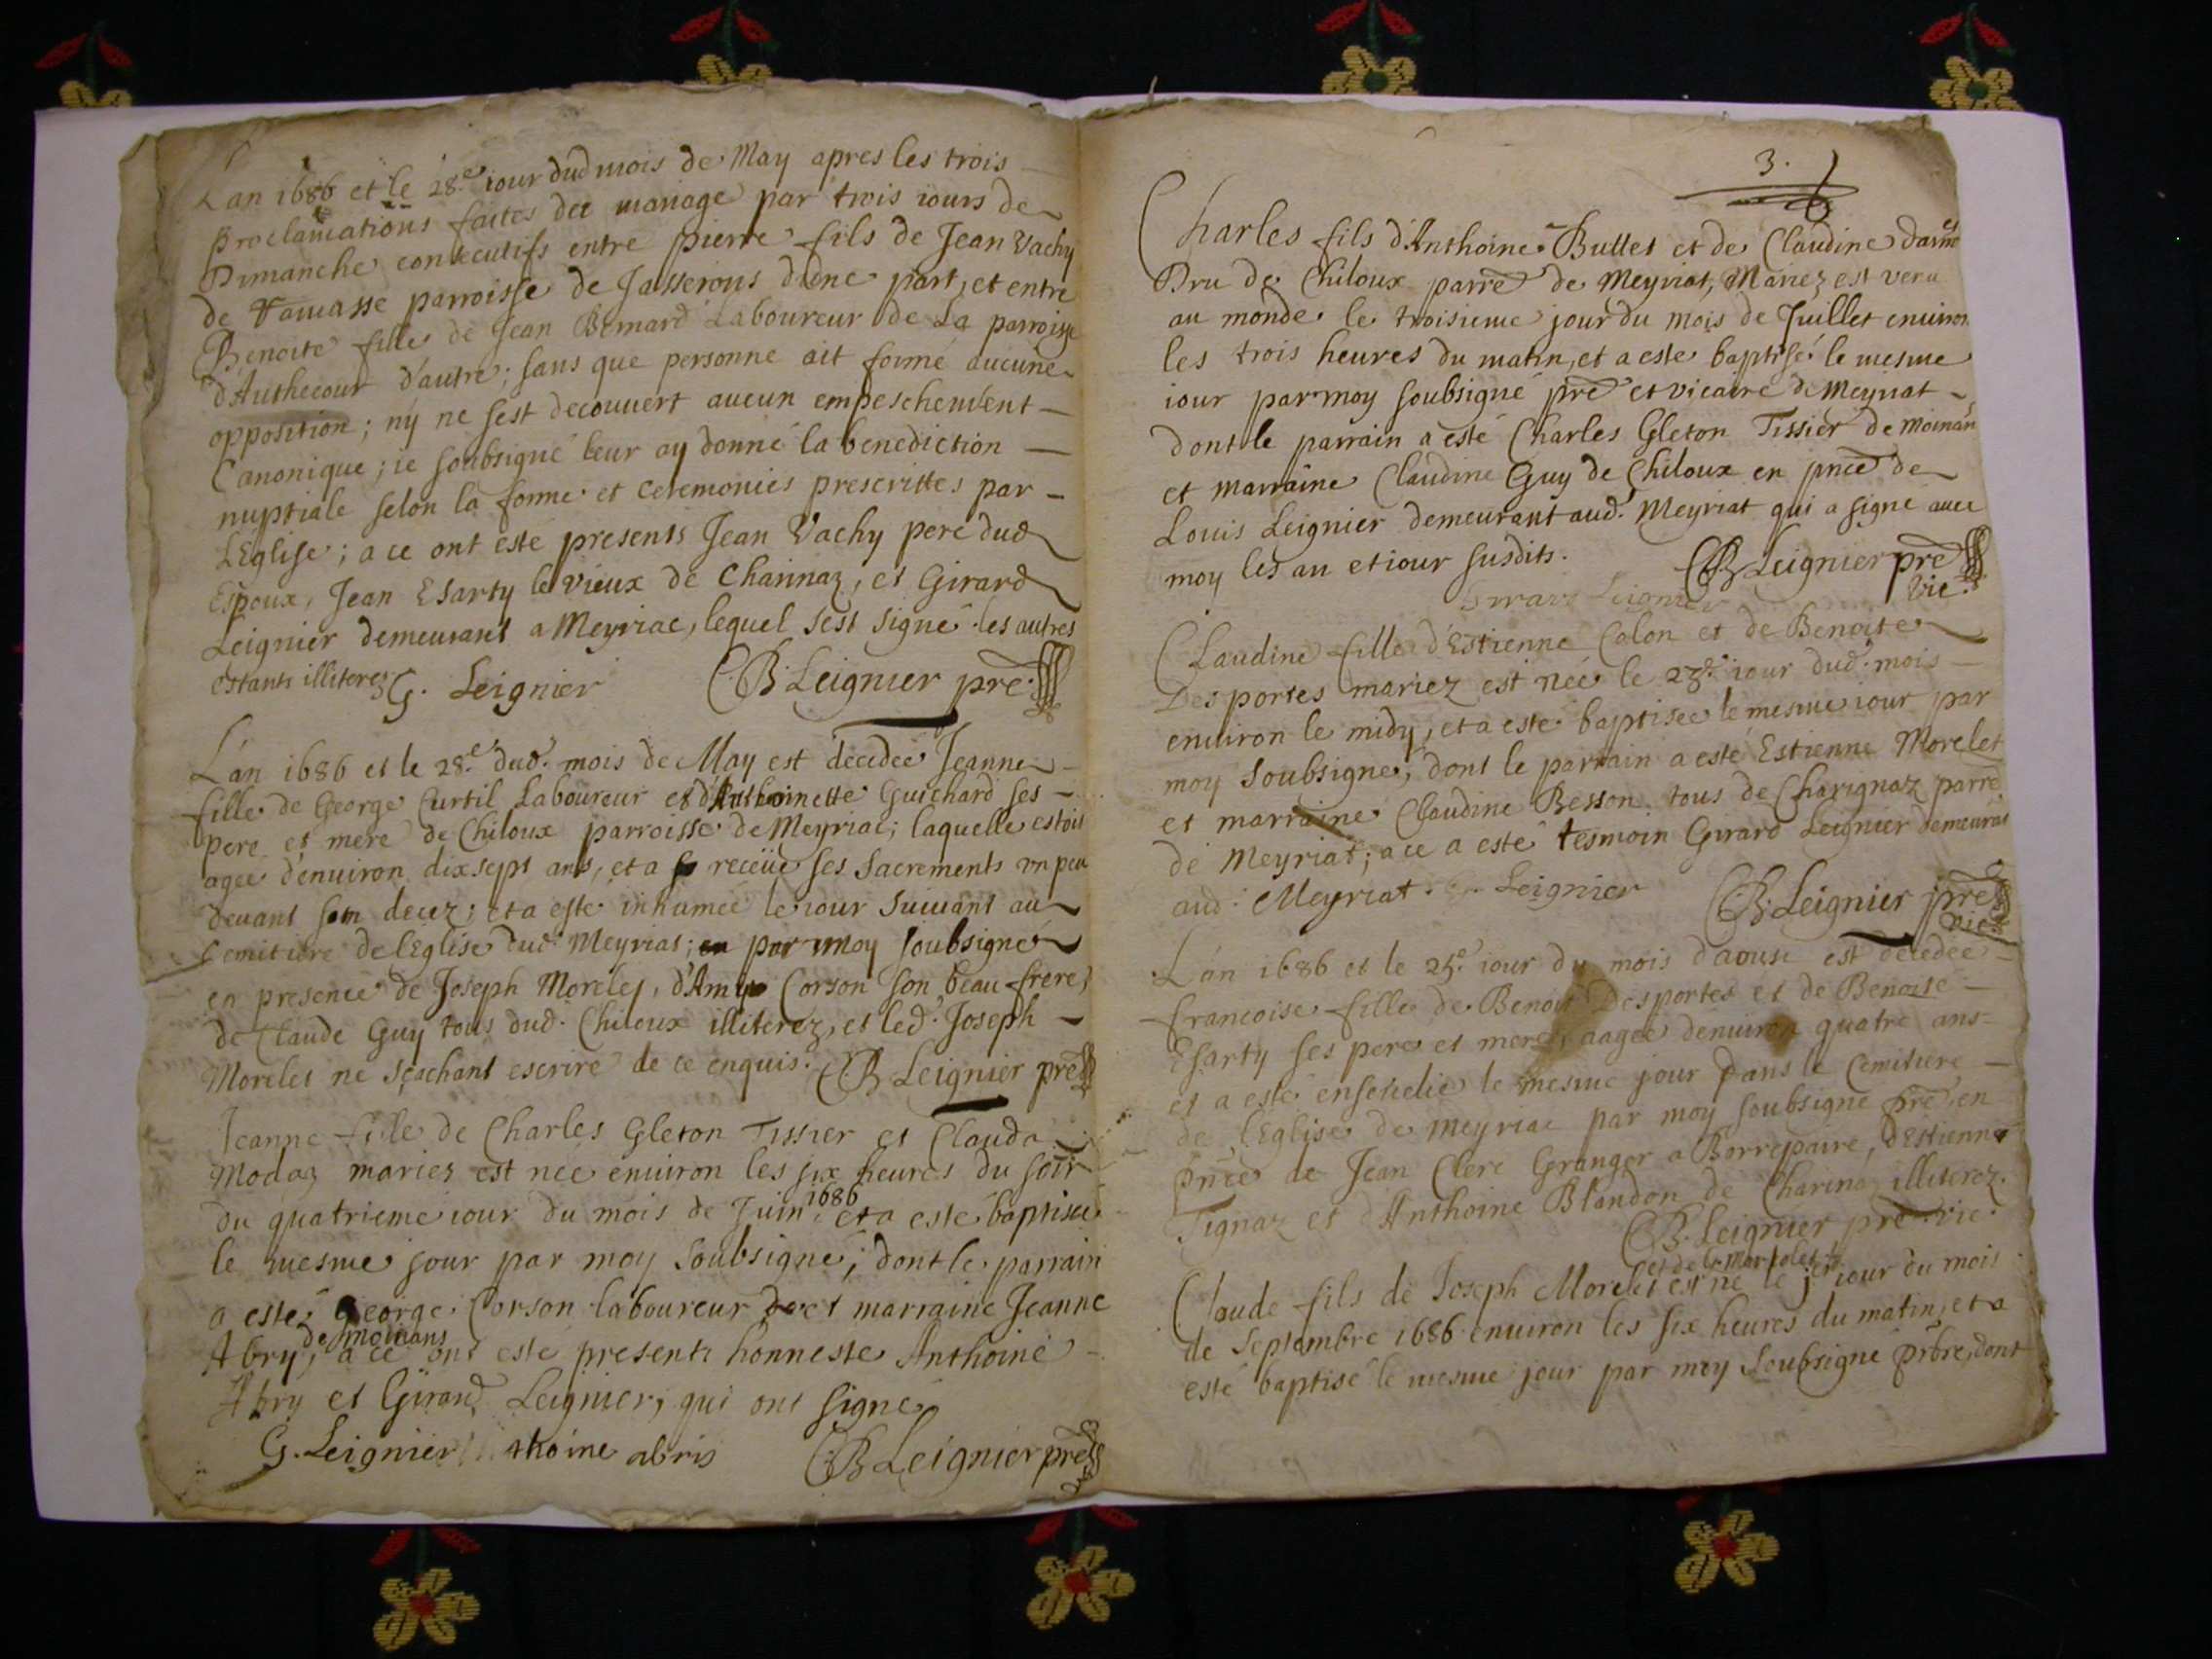 Lan 1686 et le 28.e iour dud mois de May apres les trois
proclamations faites de mariage par trois iours de
Dimanche consecutifs entre pierre fils de Jean Vachy
de parroisse de Jasserons dune part, et entre
Benoite fille de Jean Bernard Laboureur de La parroisse
d'Authecour d'autre; sans que personne ait formé aucune
opposition; ny ne sest decouuert aucun empeschement
Canonique; ie soubsigné leur ay donné la benediction
nuptiale selon la forme et ceremonies prescrittes par
LEglise; a ce ont esté presents Jean Vachy pere dud
Espoux, Jean Esarty le vieux de Charinaz, et Girard
Leignier demeurant a Meyriac, lequel sest signé les autres
estants illiterez G. Leignier CB Leignier pre.
L'an 1686 et le 28.e dud. mois de May est decedée Jeanne
fille de George Curtil Laboureur et d'Anthoinette Guichard ses
pere et mere de Chiloux parroisse de Meyriac; laquelle estoit
agée d'enuiron dix sept ans, et a receüe ses Sacrements vn peu
deuant son decez; et a esté inhumée le iour Suiuant au
Cemitiere de lEglise dud. Meyriat; par moy soubsigné
en presence de Joseph Morelet, d'Amy Corson son beau frere,
de Claude Guy tous dud. Chiloux illiterez, et led. Joseph
Morelet ne sçachant escrire de ce enquis. CB Leignier pre
Jeanne fille de Charles Gleton Tissier et Clauda
Modaz mariez est née enuiron les six heures du soir
du quatrieme iour du mois de Juin 1686 et a esté baptisée
le mesme jour par moy soubsigné; dont le parrain
a esté George Corson laboureur et marraine Jeanne
Abry de moinans; a ce ont esté presents honneste Anthoine
Abry et Girard Leignier, qui ont signé
G. Leignier thoine abris CB Leignier pre
3.
Charles fils d'Anthoine Bullet et de Claudine
Dru de Chiloux parre de Meyriat, Mariez est venu
au monde le troisieme jour du mois de Juillet enuiron
les trois heures du matin, et a esté baptisé le mesme
iour par moy soubsigné pre et vicaire de Meyriat
dont le parrain a esté Charles Gleton Tissier de moinan
et marraine Claudine Guy de Chiloux en pnce de
Louis Leignier demeurant aud. Meyriat qui a signé auec
moy les an et iour susdits. CB Leignier pre
Leignier vic.
Claudine fille d'Estienne Colon et de Benoite
Desportes mariez est née le iour dud. mois
enuiron le midy, et a esté baptisée le mesme iour par
moy soubsigné, dont le parrain a esté Estienne Morelet
et marraine Claudine Besson tous de Charignaz parre
de Meyriat; a ce a esté tesmoin Girard Leignier demeurat
aud. Meyriat. G. Leignier CB. Leignier pre
vic
L'an 1686 et le 25.e iour du mois d'aoust est decedée
francoise fille de Benoit Desportes et de Benoite
Esarty ses pere et mere, aagée denuiron quatre ans
et a esté enseuelie le mesme jour dans le Cemitiere
de lEglise de Meyriac par moy soubsigné pre, en
pnce de Jean Clerc Granger a Borrepaire, d'Estienne
Tignaz et d'Anthoine Blandon de Charina illiterez.
CB. Leignier pre. vic.
Claude fils de Joseph Morelet est né le j.er iour du mois
de Septembre 1686 enuiron les six heures du matin, et a
esté baptisé le mesme jour par moy soubsigné prbre, dont